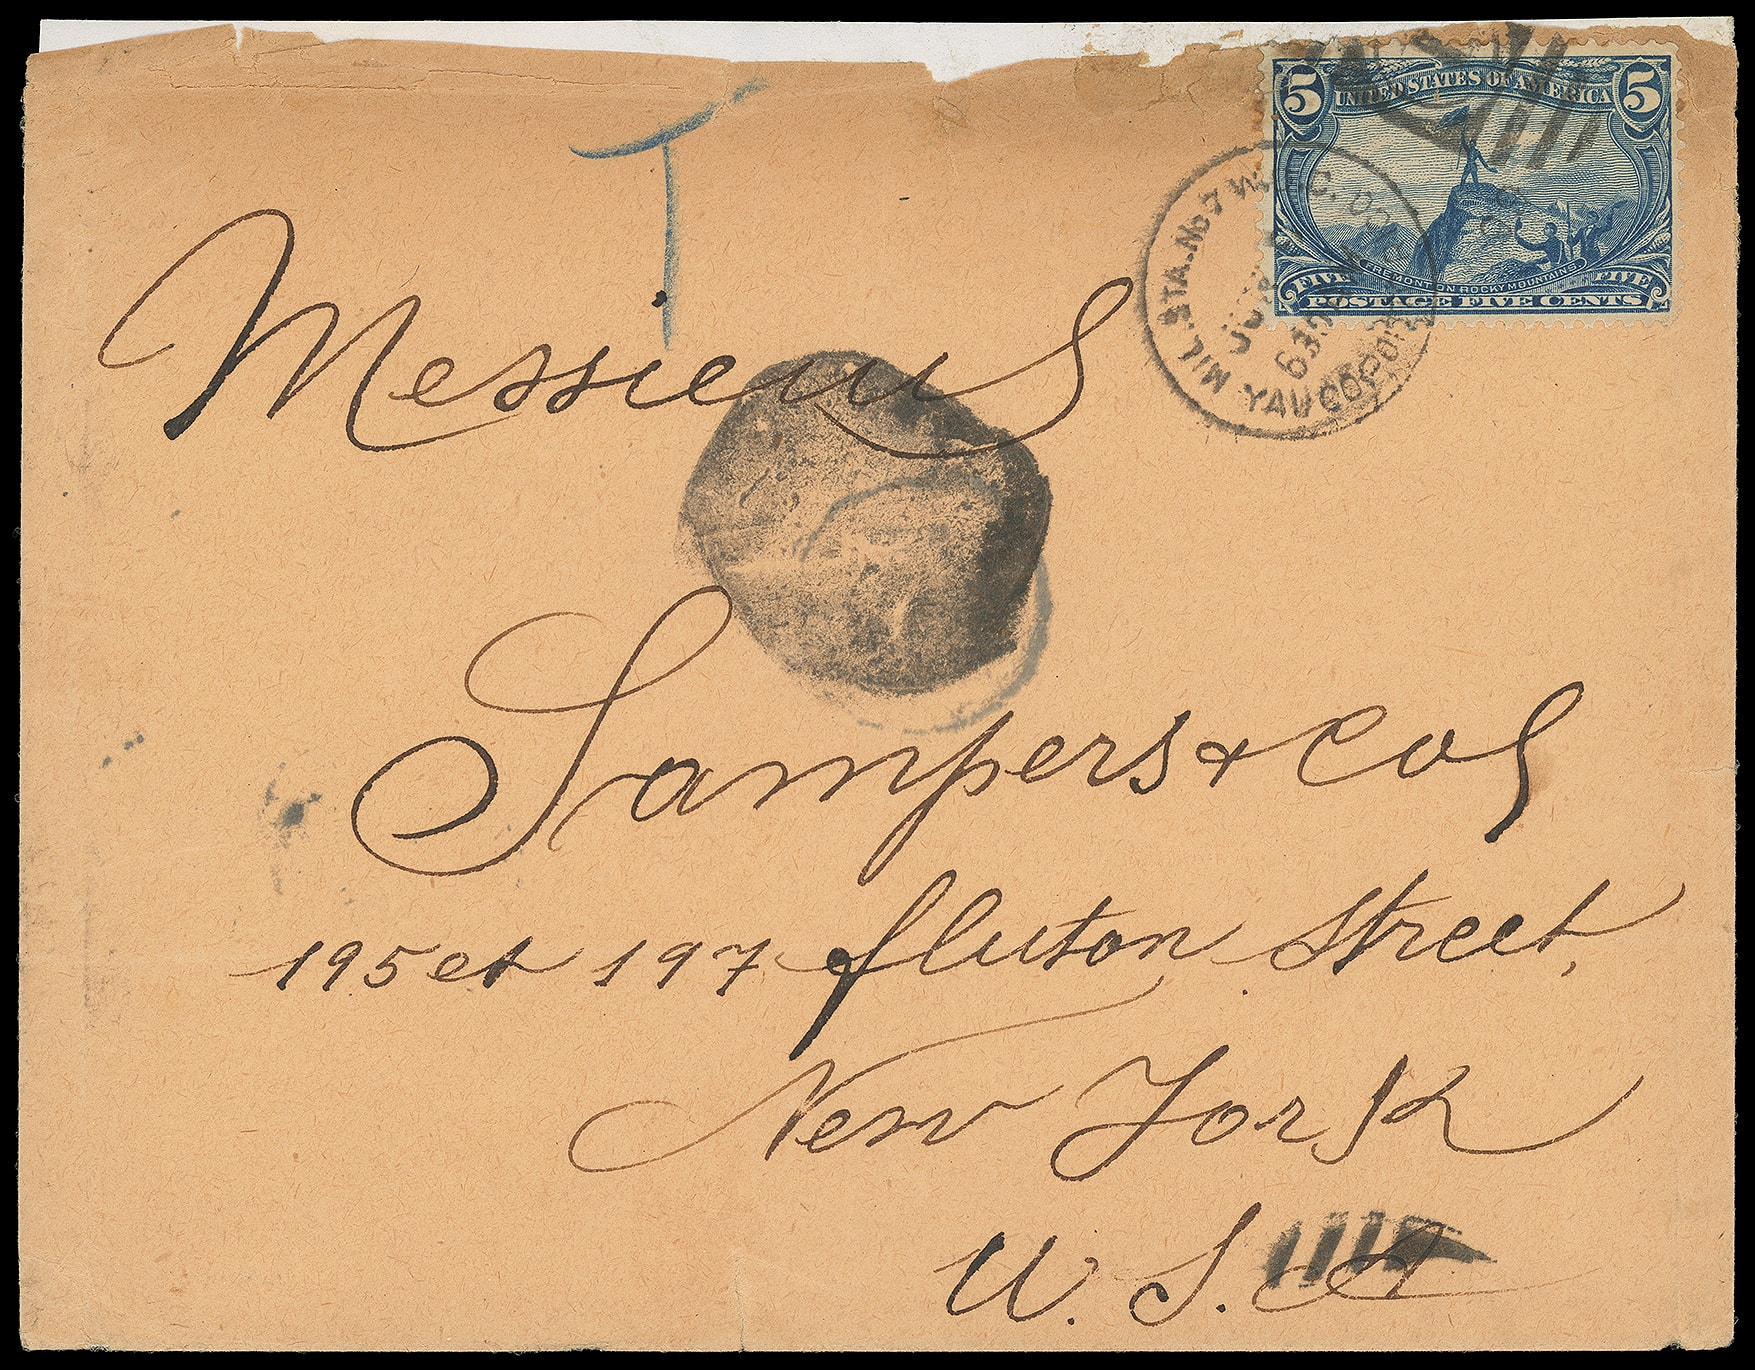 5 UNITED STATES OF AMERICA 5
FREMONT ON ROCKY MOUNTAINS
FIVE FIVE
POSTAGE FIVE CENTS
MIL. STA. No 7 W
630
T
Messieurs
Sampers & Cos
195 et 197 fluton Street,
New York
U. S. A